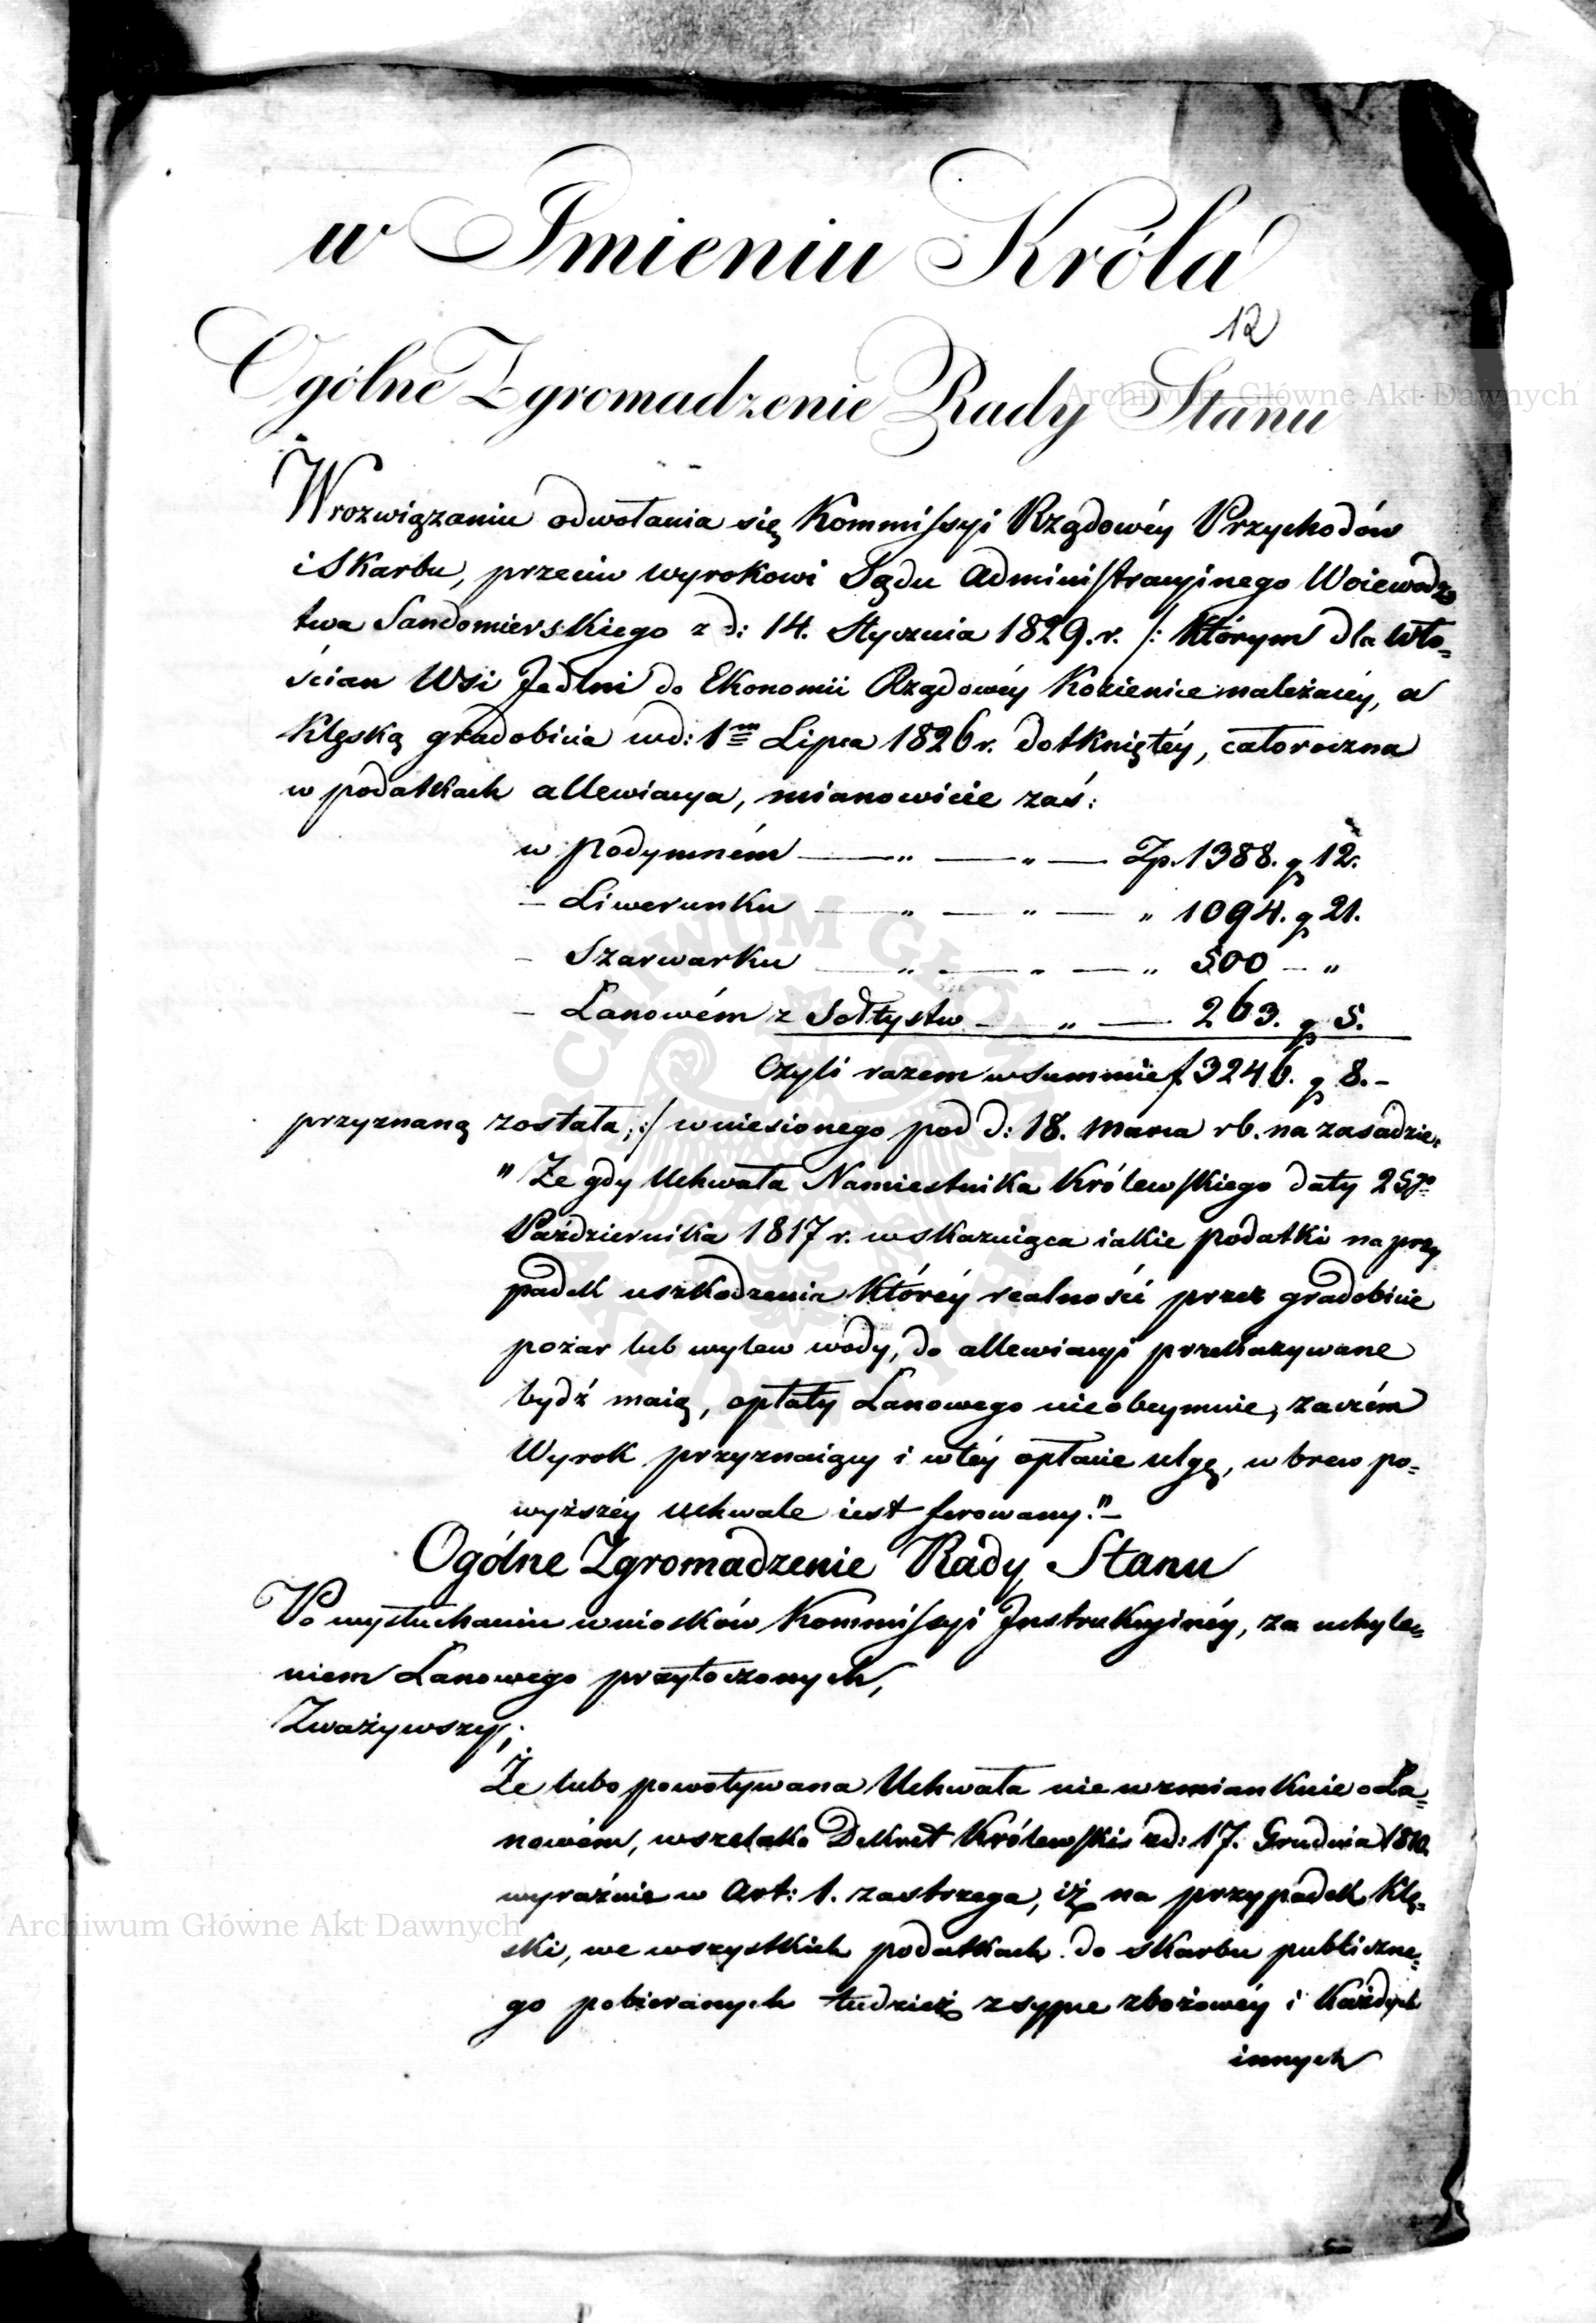 w Imieniu Króla
12
Ogólne Zgromadzenie Rady Stanu
W rozwiązaniu odwołania się Kommissyi Rządowéy Przychodów
i Skarbu, przeciw wyrokowi Sądu Administracyinego Woiewodz=
twa Sandomierskiego z d: 14. Stycznia 1829. r. /: którym dla Wło=
ścian Wsi Jedlni do Ekonomii Rządowéy Kozienice należącéy, a
klęską gradobicia w d: 1m Lipca 1826 r. dotkniętéy, całoroczna
w podatkach allewiacya, mianowicie zaś:
w podymném — „ — „ — Zp. 1388. g 12.
– Liwerunku — „ — „ — „ 1094. g 21.
– Szarwarku — „ — „ — „ 500 – „
– Łanowém z Sołtystw — „ — 263. g 5.
czyli razem w summie f 3246. g 8. –
przyznaną została, :/ wniesionego pod d: 18. Marca rb. na zasadzie.
„ Że gdy Uchwała Namiestnika Królewskiego daty 25go
Października 1817 r. wskazuiąca iakie podatki na przy
padek uszkodzenia któréy realności przez gradobicie
pożar lub wylew wody, do allewiacyi przekazywane
bydź maią, opłaty Łanowego nieobeymuie, zaczém
Wyrok przyznaiący i w téy opłacie ulgę, w brew po=
wyższéy Uchwale iest ferowany." –
Ogólne Zgromadzenie Rady Stanu
Po wysłuchaniu wniosków Kommissyi Instrukcyinéy, za uchyle=
niem Łanowego przytoczonych,
Zważywszy;
Że lubo powoływana Uchwała nie wzmiankuie o Ła=
nowém, wszelako Dekret Królewski z d: 17. Grudnia 1810.
wyraźnie w Art: 1. zastrzega, iż na przypadek klę=
ski, we wszystkich podatkach do skarbu publiczne=
go pobieranych tudzież zsypce zbożowéy i każdych
innych
Archiwum Główne Akt Dawnych
Archiwum Główne Akt Dawnych
ARCHIWUM GŁÓWNE AKT DAWNYCH